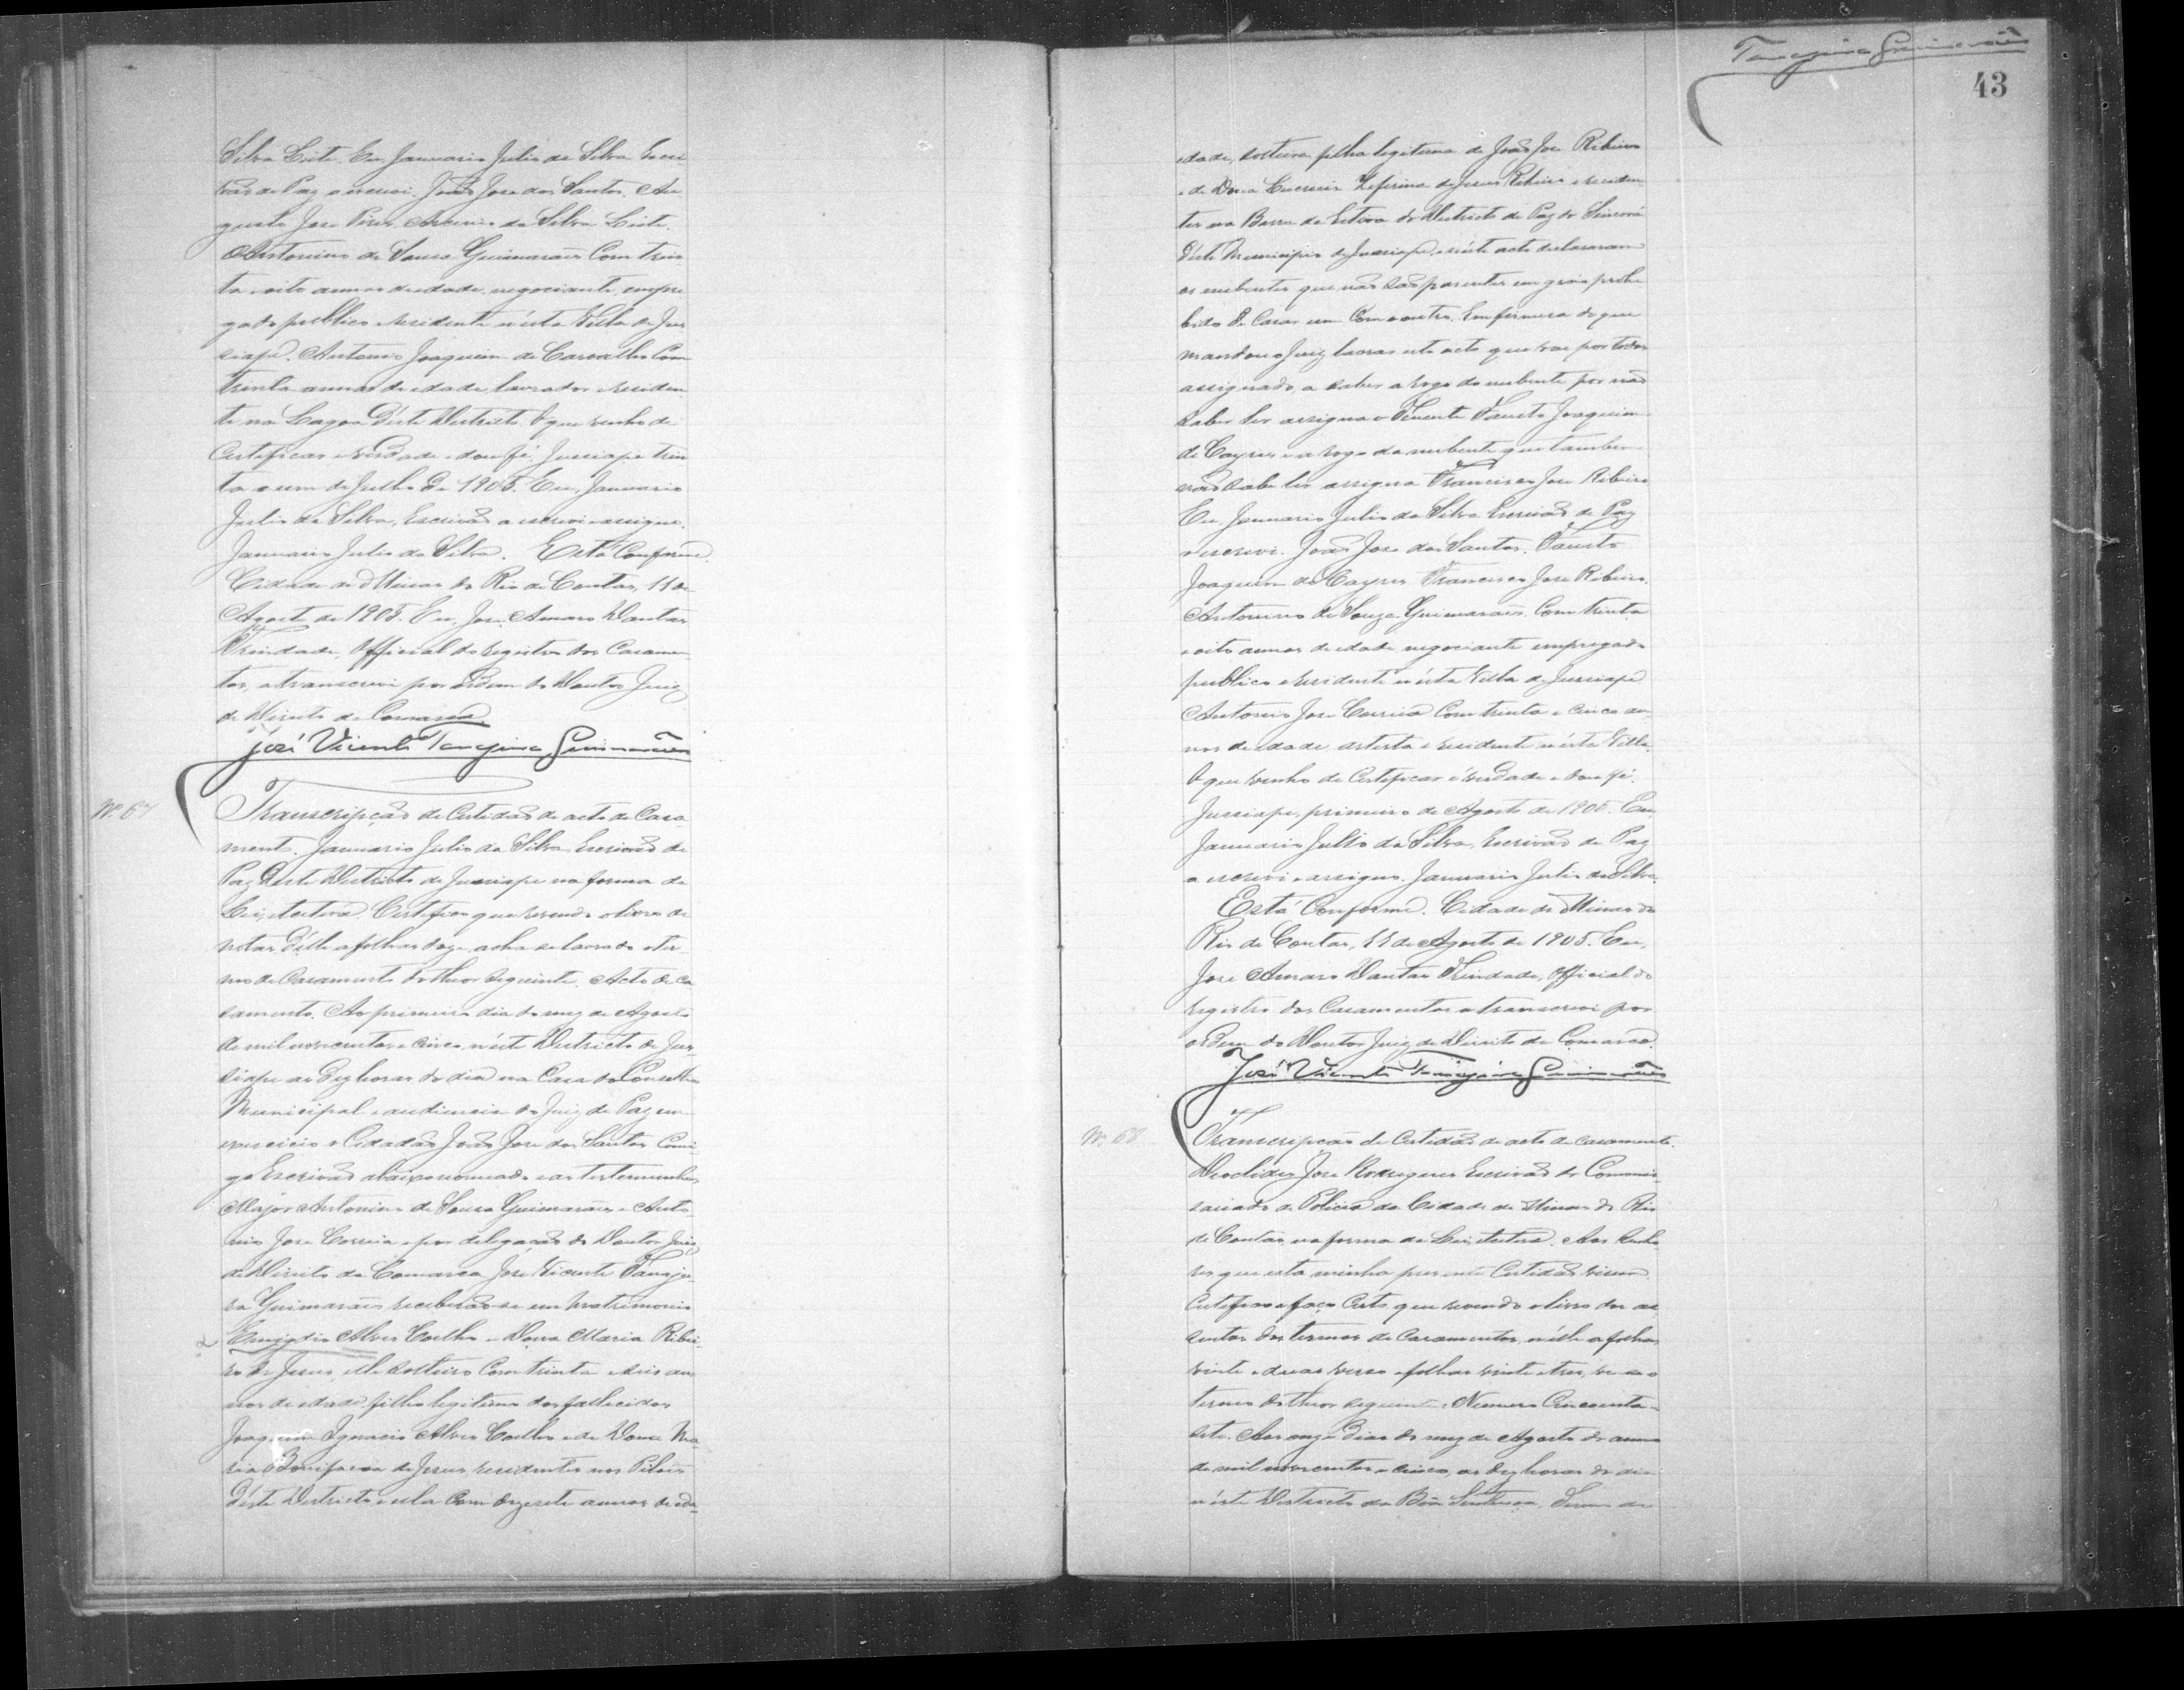 Silva Leite. Eu, Januario Julio da Silva Escri
vão de Paz o escrevi. João Jose dos Santos. Au
gusto Jose Pires. Arsenio da Silva Leite.
Antonino de Sousa Guimarães Com trin
ta e oito annos de idade, negociante, empre
gado publico e residente n'esta Villa de Jus
siape. Antonio Joaquim de Carvalho Com
trinta annos de idade, lavrador e residen
te na Lagoa d'este Districto. O que venho de
Certificar é verdade e dou fé. Jussiape trin
ta e um de Julho de 1905. Eu, Januario
Julio da Silva, Escrivão o escrevi e assigno.
Januario Julio da Silva. Está Conforme.
Cidade de Minas do Rio de Contas, 11 de
Agosto de 1905. Eu, Jose Amaro Dantas
Trindade, Official do registro dos Casamen
tos, o transcrevi por ordem do Doutor Juiz
de Direito da Comarca.
José Vicente Tanajura Guimarães
Nº 67
Transcripção de Certidão de acto de Casa
mento. Januario Julio da Silva, Escrivão de
Paz d'este Districto de Jussiape na forma da
Lei, etcetera. Certifico que revendo o livro de
notas, d'elle a folhas doze, acha-se lavrado o ter
mo de Casamento do theor seguinte. Acto de ca
samento. Ao primeiro dia do mez de Agosto
de mil novecentos e cinco, n'este Districto de Jus
siape as dez horas do dia na Casa do Conselho
Municipal e audiencia do Juiz de Paz em
exercicio o Cidadão João Jose dos Santos Comi
go Escrivão abaixo nomeado e as testemunhas
Major Antonino de Sousa Guimarães e Anto
nio Jose Correia e por delegação do Doutor Juiz
de Direito da Comarca José Vicente Tanaju
ra Guimarães receberão-se em matrimonio
Emigdio Alves Coelho e Dona Maria Ribei
ro de Jesus, elle solteiro Com trinta e seis an
nos de idade, filho legitimo dos fallecidos
Joaquim Ignacio Alves Coelho e de Dona Ma
ria Bonifacia de Jesus residentes nos Pilões
d'este Districto e ella Com dezesete annos de ida
Tanajura Guimarães
43
idade, solteira filha legitima de João Jose Ribeiro
e de Dona Zeferina de Jesus Ribeiro e residen
tes na Barra da Estiva do Districto de Paz do Sincorá
d'este Municipio de Jussiape, e n'este acto declararam
os nubentes que não são parentes em gráo prohi
bido de Casar um Com o outro. Em firmesa do que
mandou o Juiz lavrar este acto que vae por todos
assignado, a saber a rogo do nubente por não
saber ler assigna o Tenente Fausto Joaquim
de Cayres e a rogo da nubente que tambem
não sabe ler assigna Francisco Jose Ribeiro
Eu, Januario Julio da Silva Escrivão de Paz
o escrevi. João Jose dos Santos. Fausto
Joaquim de Cayres. Francisco Jose Ribeiro.
Antonino de Souza Guimarães. Com trinta
e oito annos de idade, negociante empregado
publico e residente n'esta Villa de Jussiape.
Antonio Jose Correia Com trinta e cinco an
nos de idade, artista e residente n'esta Villa
O que venho de Certificar é verdade e dou fé.
Jussiape, primeiro de Agosto de 1905. Eu,
Januario Julio da Silva, Escrivão de Paz
o escrevi e assigno. Januario Julio da Silva.
Está Conforme. Cidade de Minas do
Rio de Contas, 11 de Agosto de 1905. Eu,
Jose Amaro Dantas Trindade, Official do
registro dos Casamentos o transcrevi por
ordem do Doutor Juiz de Direito da Comarca.
José Vicente Tanajura Guimarães
Nº 68
Transcripção de Certidão de acto de casamento.
Deoclides Jose Rodrigues Escrivão do Commis
sariado de Policia da Cidade de Minas do Rio
de Contas, na forma da Lei, etcetera. Aos Senho
res que esta minha presente Certidão virem
Certifico e faço Certo que revendo o livro dos as
sentos dos termos de Casamentos, n'elle a folhas
vinte e duas verso e folhas vinte e tres, ve-se o
termo do theor seguinte: Numero Cincoenta e
sete. Aos onze dias do mez de Agosto do anno
de mil novecentos e cinco, as dez horas do dia
n'este Districto da Bôa Sentença, Termo de